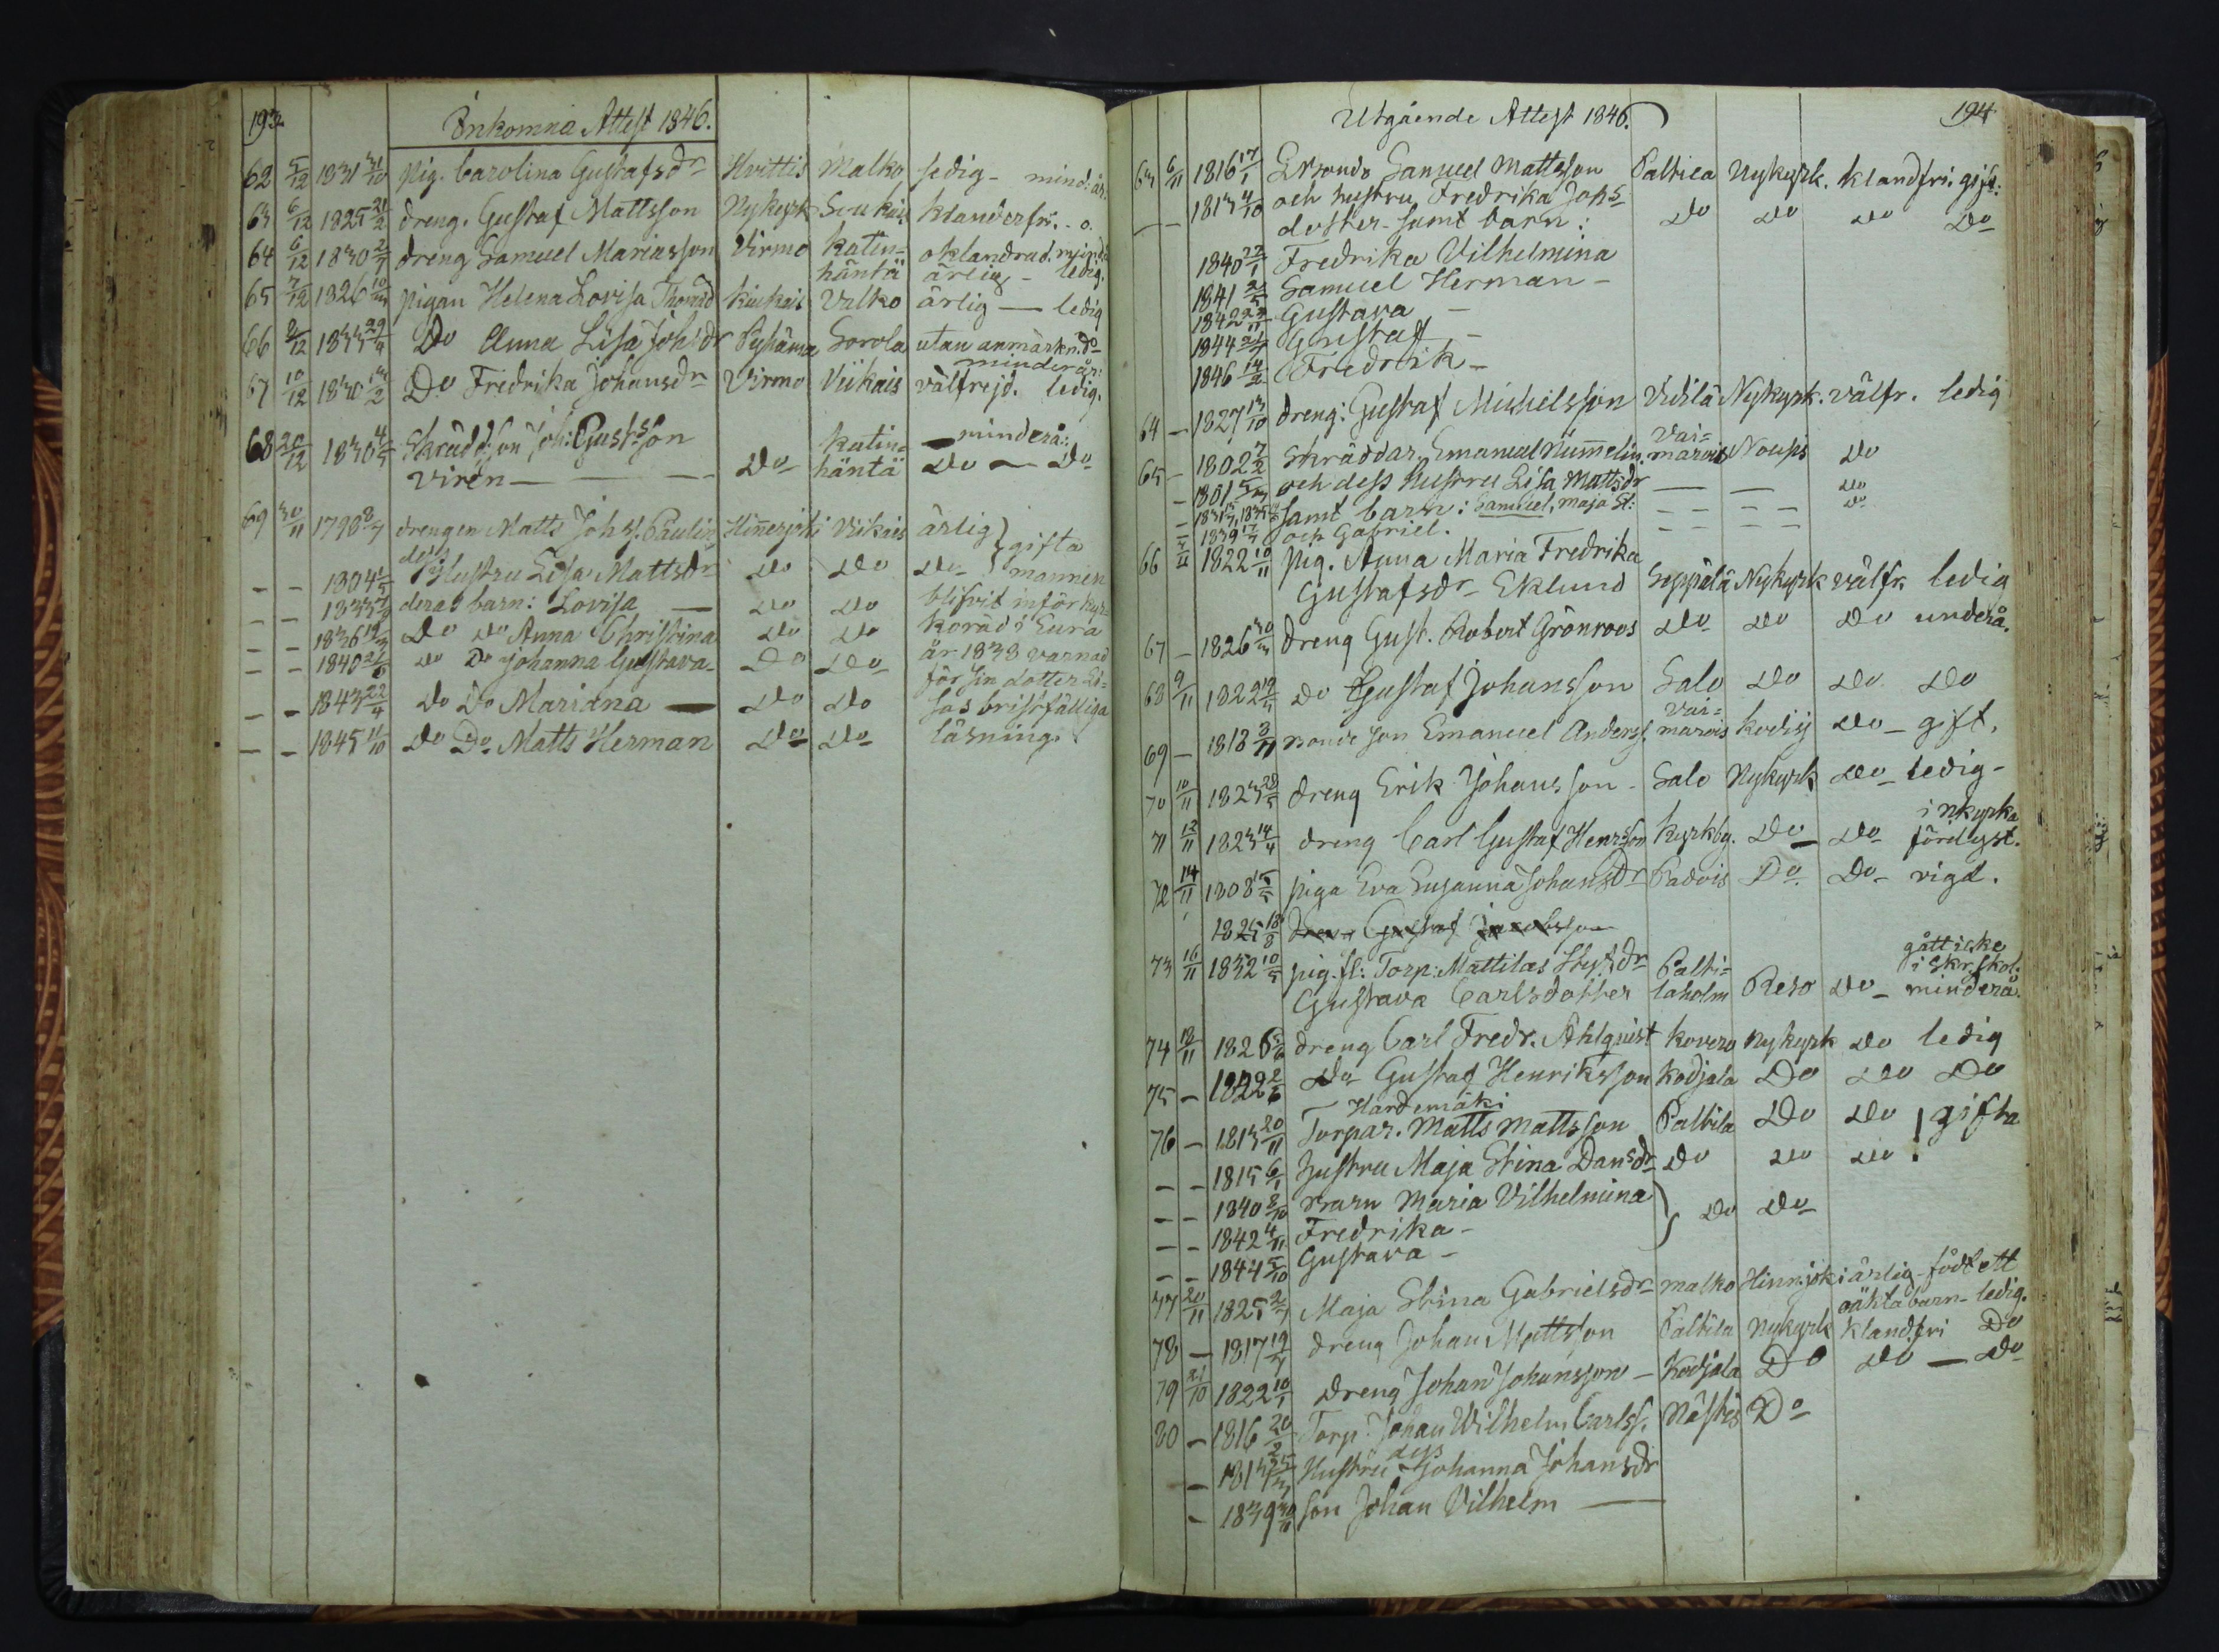 193
Inkomna Attest 1846.
62 5/12 1831 31/10 pig. Carolina Gustafsdr Hvittis Malko ledig - mind: år:
63 6/12 1825 21/2 dreng. Gustaf Mattsson Nykyrk Soukais klanderfri. - o.
64 6/12 1830 2/7 dreng Samuel Mariasson Virmo Katin= oklandrad. mind:
häntä ärlig - ledig.
65 7/12 1826 10/3 pigan Helena Lovisa Thomasd Kiukais Valko ärlig — ledig
66 8/12 1833 29/9 Do Anna Lisa Joh:sdr Pyhäma Sorola utan anmärkn. Do
minderår:
67 10/12 1830 13/2 Do Fredrika Johansdr Virmo Viikais välfrejd. ledig.
68 20/12 1830 4/5 Skrädd: son Joh: Gustsson Katin= — minderå:
Virén — — — Do häntä Do — Do
69 30/11 1798 8/7 drengen Matts Johss. Paulin Hinnerjoki Viikais ärlig } gifta
- - 1804 1/5 dess Hustru Lisa Mattsdr Do Do Do } mannen
- - 1833 deras barn: Lovisa — Do Do blifvit inför kyr=
- - 1836 19/3 Do Do Anna Christina Do Do koråd i Eura
- - 1840 21/6 Do Do Johanna Gustava - Do Do år 1838 varnad
för sin dotter Lo=
- - 1843 22/4 Do Do Mariana — Do Do sas bristfälliga
- - 1845 11/10 Do Do Matts Herman Do Do läsning.
Utgående Attest 1846.
194
63 6/11 1816 17/1 Bonde Samuel Mattsson Paltila Nykyrk. klandfri. gift:
- - 1813 4/10 och hustru Fredrika Johs=
dotter - samt barn: Do Do Do Do
1840 22/1 Fredrika Vilhelmina
1841 2/5 Samuel Herman -
1842 23/11 Gustava -
1844 21/7 Gustaf -
1846 14/2 Fredrik -
64 - 1827 13/10 dreng: Gustaf Michelsson Vidilä Nykyrk. välfr. ledig
65 - 1802 7/2 Skräddar. Emanuel Numelin. Vai=marois Noups Do
- 1801 5/3 och dess hustru Lisa Mattsdr — — Do
- samt barn: Samuel, Maja St: = = = = Do
- 1839 17/7 och Gabriel. = = = =
66 7/11 1822 10/11 pig. Anna Maria Fredrika
Gustafsdr - Eklund Seppälä Nykyrk välfr. ledig
67 - 1826 30/3 dreng Gust. Robert Grönroos Do Do Do underå.
68 9/11 1822 19/5 Do Gustaf Johansson Salo Do Do Do
69 - 1818 3/11 Bonde son Emanuel Anderss. Vai=marois Kodisj Do - gift.
70 10/11 1823 28/5 dreng Erik Johansson - Salo Nykyrk Do ledig -
71 12/11 1823 14/4 dreng Carl Gustaf Henrsson Kyrkby. Do - Do i Nkyrka
förelyst.
72 14/11 1808 15/5 piga Eva Susanna Johansdr Padois Do. Do - vigd.
1825 18/8 Dreng Gustaf Jacobsson
73 16/11 1832 10/5 pig. fl: Torp: Mattilas Styfdr Palti= gått icke
i skr. skol:
Gustava Carlsdotter laholm Reso Do - minderå.
74 18/11 1826 dreng Carl Fredr. Ahlqvist Kovero Nykyrk Do ledig
75 - 1822 2/6 Do Gustaf Henriksson Kodjala Do Do Do
Hardemäki
76 - 1813 20/11 Torpar. Matts Mattsson Paltila Do Do } gifta
- - 1815 6/1 hustru Maja Stina Dansdr Do Do Do
- - 1840 8/10 Barn Maria Vilhelmina } Do Do
- - 1842 4/11 Fredrika -
- - 1844 5/10 Gustava -
77 20/11 1825 2/7 Maja Stina Gabrielsdr Malko Hinnrjoki ärlig - födt ett
oäkta barn - ledig.
78 - 1817 19/7 dreng Johan Mattsson Paltila Nykyrk klandfri Do
79 21/10 1822 10/1 Dreng Johan Johansson - Kodjala Do Do — Do
80 - 1816 20/2 Torp. Johan Wilhelm Carlss. Nästis Do
- 1813 25/3 Hustru dess Johanna Johansdr
- 1839 30/11 son Johan Vilhelm —